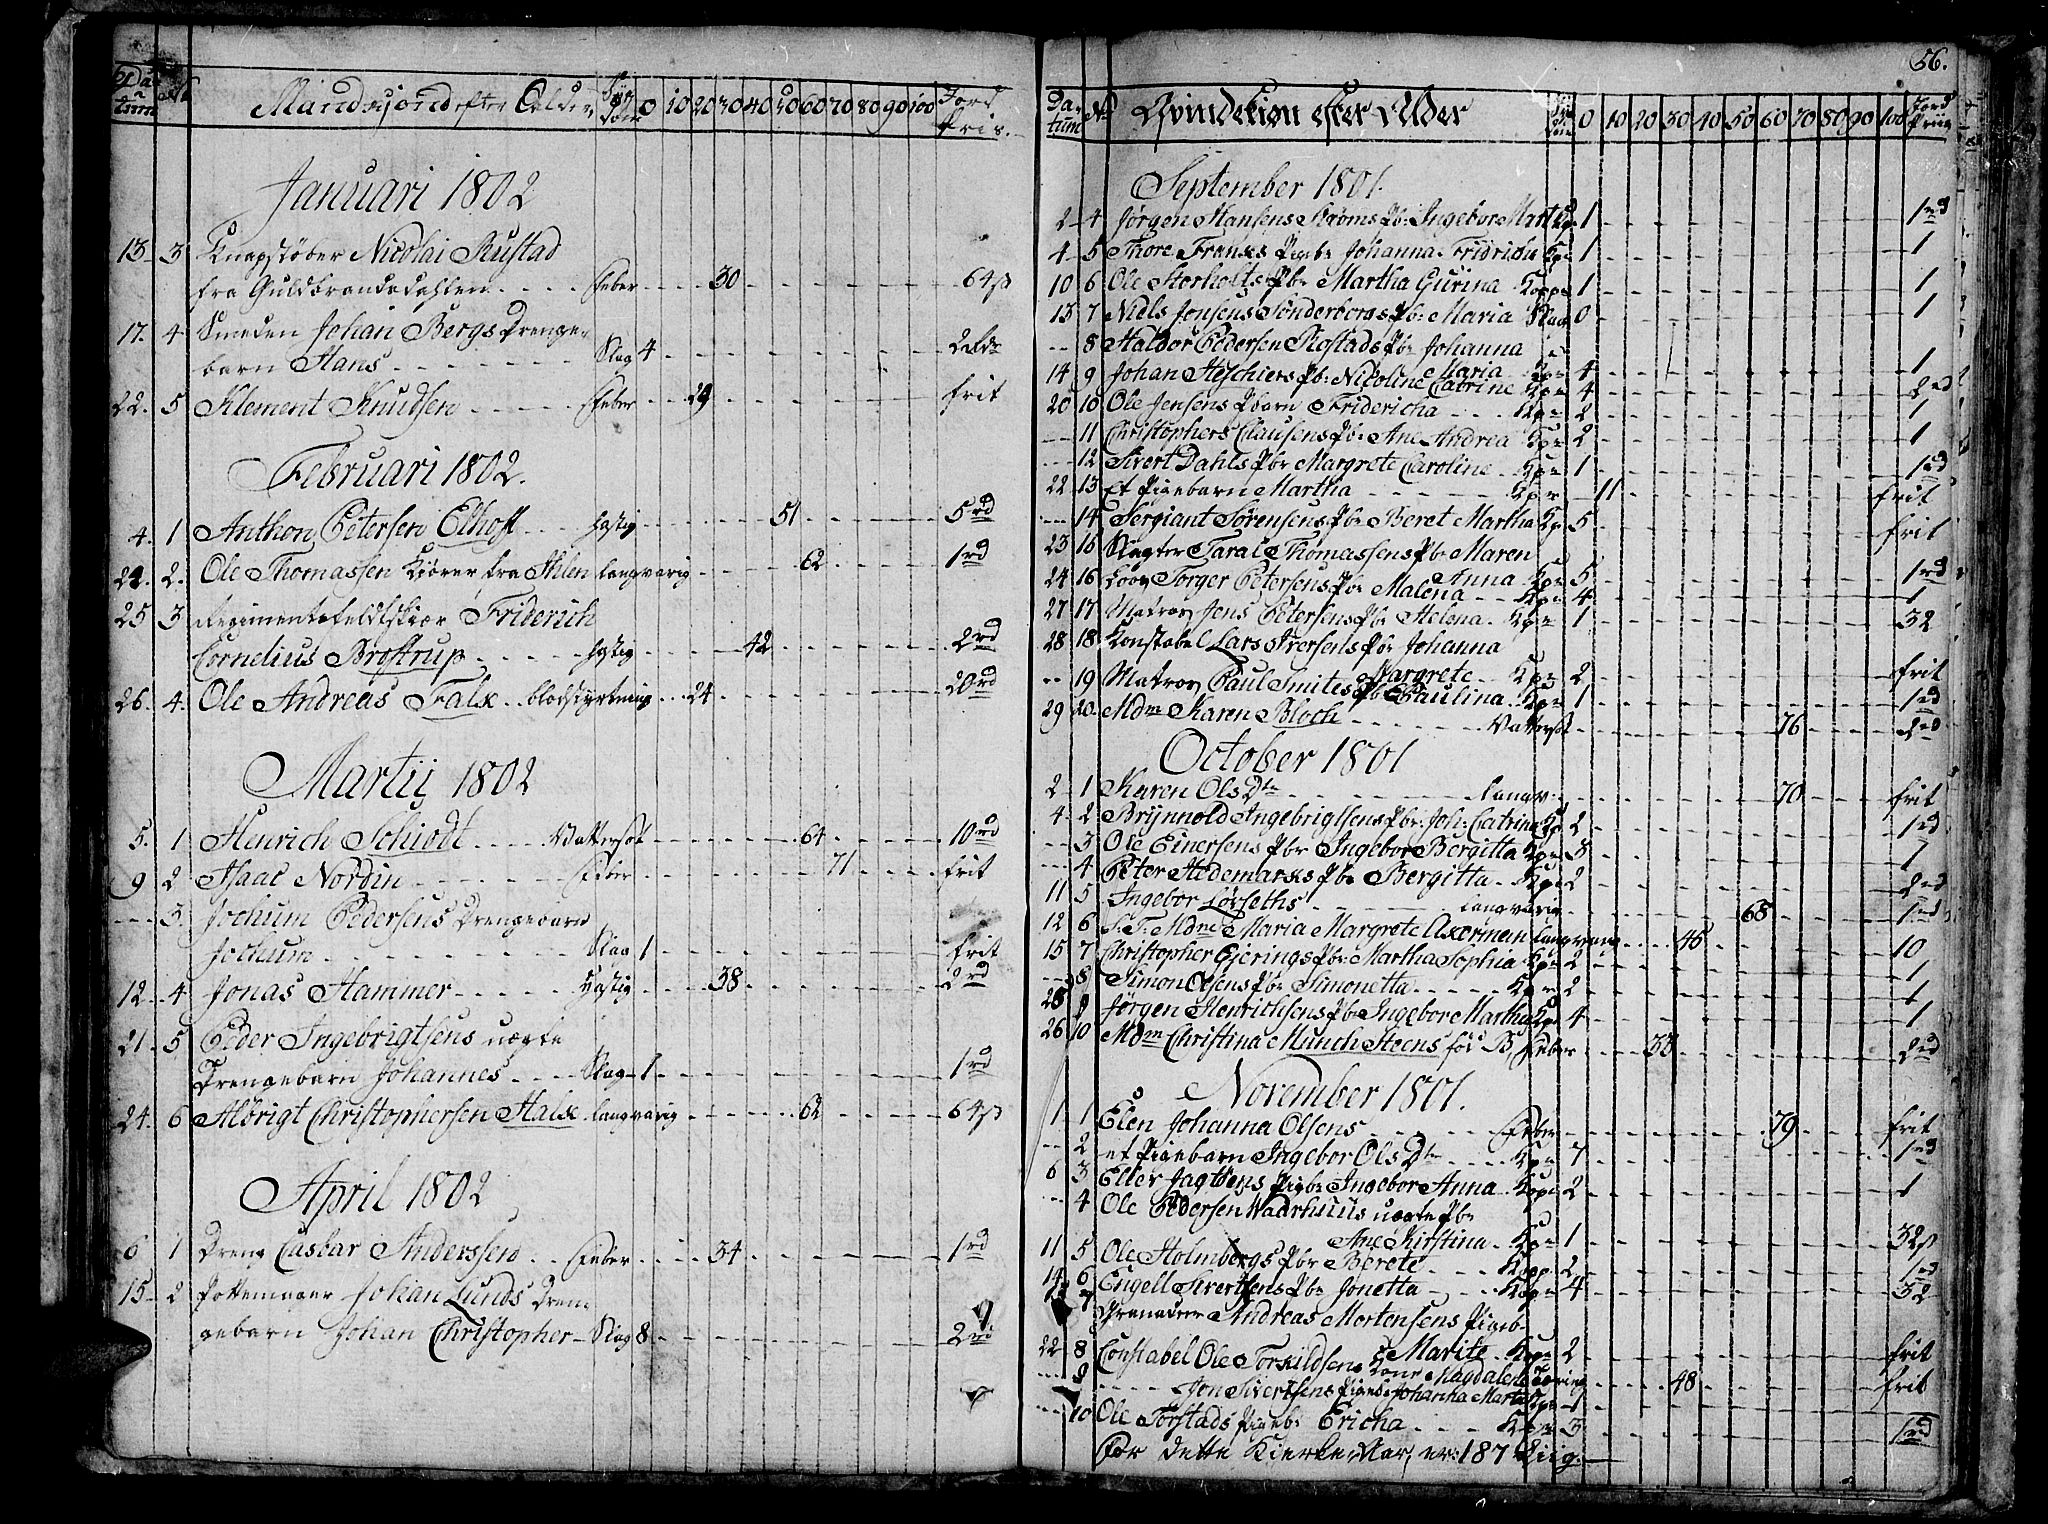 Da tum No Mandkjønd efter Alder Syg dom 0 10 20 30 40 50 60 70 80 90 100 Jord Priis
Januari 1802
13 3 Knapstøber Nicolai Rustad
fra Guldbrandsdahlen Feber 30 64 ß
17. 4 Smeden Johan Bergs Drenge-
barn Hans Slag 4
22. 5 Klement Knudsen Feber 29 frit
Februari 1802.
4. 1 Anthon Petersen Elhoff hastig 51 5 rd
24. 2. Ole Thomassen Kiører fra Ihlen langvarig 62 1 rd
25 3 Regimentsfeldtskiær Friderich
Cornelius Brostrup hastig 42 2 rd
26. 4. Ole Andreas Falk blodstyrtning 24 20 rd
Martij 1802
5. 1 Henrich Schiødt Vattersot 64 10 rd
9 2 Isaac Nordin Feber 71 frit
3. Jochum Pedersens Drengebarn
Jochum Slag 1 frit
12 4 Jonas Hammer Hastig 38 2 rd
21. 5 Peder Ingebrigtsens uægte
Drengebarn Johannes Slag 1 1 rd
24. 6 Albrigt Christophersen Halse langvarig 62 64 ß
April 1802
6 1 Dreng Casbar Anderssen Feber 34 1 rd
15 2 Pottemager Johan Lunds Dren-
gebarn Johan Christopher Slag 8 2 rd
56.
Da tum No Qvindekiøn efter Alder 0 10 20 30 40 50 60 70 80 90 100 Jord Priis
September 1801.
2 4 Jørgen Hansens Strøms Pb: Ingebor Mart Kop 1 1 rd
4 5 Thore Franks Pigeb: Johanna Fridricha Kp: 1 1
10 6 Ole Storholts Pb: Martha Gurina Kopp: 1 1
13 7 Niels Jonsens Sønderborgs Pb: Maria Slag 0 1
8 Haldor Pedersen Rostads Pb: Johanna
Maria Kp: 4 1
14 9 Johan Heschiers Pb: Nicoline Catrine Kp: 4 2 rd
20 10 Ole Jensens Pbarn Fridericha Kp: 2 1
11 Christophers Clausens Pb: Ane Andrea Kp: 2 1
12 Sivert Dahls Pb: Margrete Caroline Kp: 1 1 rd
22 13 Et Pigebarn Martha Kp: 11 frit
14 Sergiant Sørensens Pb: Beret Martha Kp: 5 frit
23 15 Slagter Taral Thomassens Pb: Maren
Anna Kp: 5 1 rd
24 16 Loos Torger Petersens Pb: Malena Kp: 4 1
27 17 Matros Jens Petersens Pb: Helena Kp: 1 32
28 18 Konstabel Lars Iversens Pb: Johanna
Margrete Kp: 2 frit
19 Matros Paul Smites Pb: Paulina Kp: 1 1 rd
29 20. Mdm Karen Bloch Vattersot 76 2 rd
October 1801
2 1 Karen Ols Dtr langv: 70 frit
4 2 Brynnold Ingebrigtsens Pb: Joh: Catrina Kp: 2 1 rd
3 Ole Einersens Pb: Ingebor Bergitta Kp: 3 1
4 Peter Hedemarks Pb: Bergitta Kp: 2 2 rd
11 5 Ingebor Lørseths langvarig 68 1 rd
12 6 S. T. Mdme Maria Margrete Akerman langvarig 46 10
15 7 Christopher Gierings Pb: Martha Sophia Kp: 2 1
8 Simon Olsens Pb: Simonetta Kp: 2 1
25 9 Jørgen Henrichsens Pb: Ingebor Martha Kp: 4 1
26 10 Mdm Christina Munch Steens fød B. Feber 33 2 rd
November 1801.
1 1 Elen Johanna Olsens Feber 79 frit
2 et Pigebarn Ingebor Ols Dtr Kp: 7 1 rd
6 3 Eller Jagtøens Pigb: Ingebor Anna Kop: 2 1
4 Ole Pedersen Wadrhuus uægte Pb:
Ane Kirstina Kp: 1 32 ß
11 5 Ole Holmbergs Pb: Berete Kop: 2 1 rd
14 6 Engell Sivertsens Pb: Jonetta Kop: 4 32
7 Granadeer Andreas Mortensens Pigeb:
Marite Kop: 2 frit
22 8 Constabel Ole Torkildsens Kone Magdalena Tæring 48 frit
9 Jon Sivertsens Pigeb: Johanna Marta Kp: 1
10 Ole Torstads Pigeb: Ericha Kp: 3 1 rd
For dette Kierke Aar, er: 187 Liig.